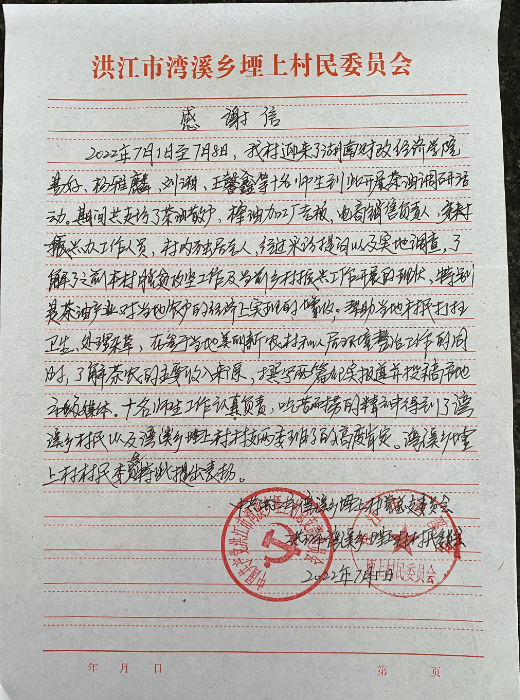 洪江市湾溪乡堙上村民委员会
感谢信
2022年7月1日至7月8日，我村迎来了湖南财政经济学院
杨雅麟、刘湘、王馨鑫等十名师生到此开展茶油调研活
动。期间共走访了茶油散户，榨油加工厂老板，电商销售负责人，乡村
振兴办工作人员，村内独居老人，经过采访提问以及实地调查，了
解了之前本村脱贫攻坚工作及当前乡村振兴工作开展的现状，特别
是茶油产业对当地农户的经济上实现的增收。帮助当地村民打扫
卫生、处理杂草，在参与当地美丽新农村和人居环境整治工作的同
时，了解茶农的主要收入来源，撰写两篇纪实报道并投稿
媒体。十名师生工作认真负责，吃苦耐劳的精神得到了湾
溪乡村民以及湾溪乡堙上村村两委班子的高度肯定。湾溪乡堙
上村村民委员特此提出表扬。
湾溪乡堙上村总支委员会
湾溪乡堙上村村民委员会
2022年7月
中国共产党洪江市湾溪乡堙上总支部委员会
堙上村民委员会
年 月 日
第 页